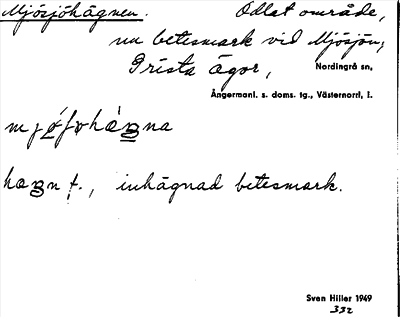 Mjösjöhägnen. Odlat område,
nu betesmark vid Mjösjön,
Prästa ägor, Nordingrå sn,
Ångermanl. s. doms. tg., Västernorrl. l.
hägn f., inhägnad betesmark.
Sven Hiller 1949
332